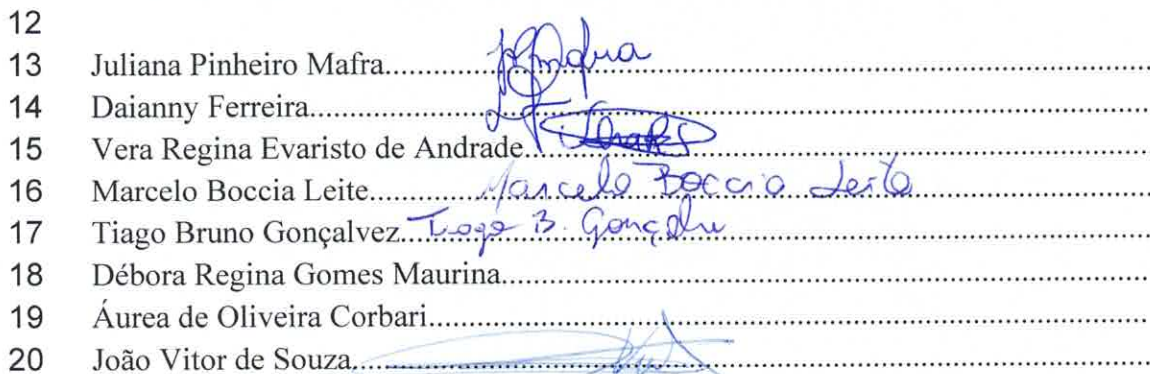 12
13 Juliana Pinheiro Mafra..........
14 Daianny Ferreira..........
15 Vera Regina Evaristo de Andrade..........
16 Marcelo Boccia Leite.......... Marcelo Boccia Leite
17 Tiago Bruno Gonçalvez.......... Tiago B. Gonçalv
18 Débora Regina Gomes Maurina..........
19 Áurea de Oliveira Corbari..........
20 João Vitor de Souza..........